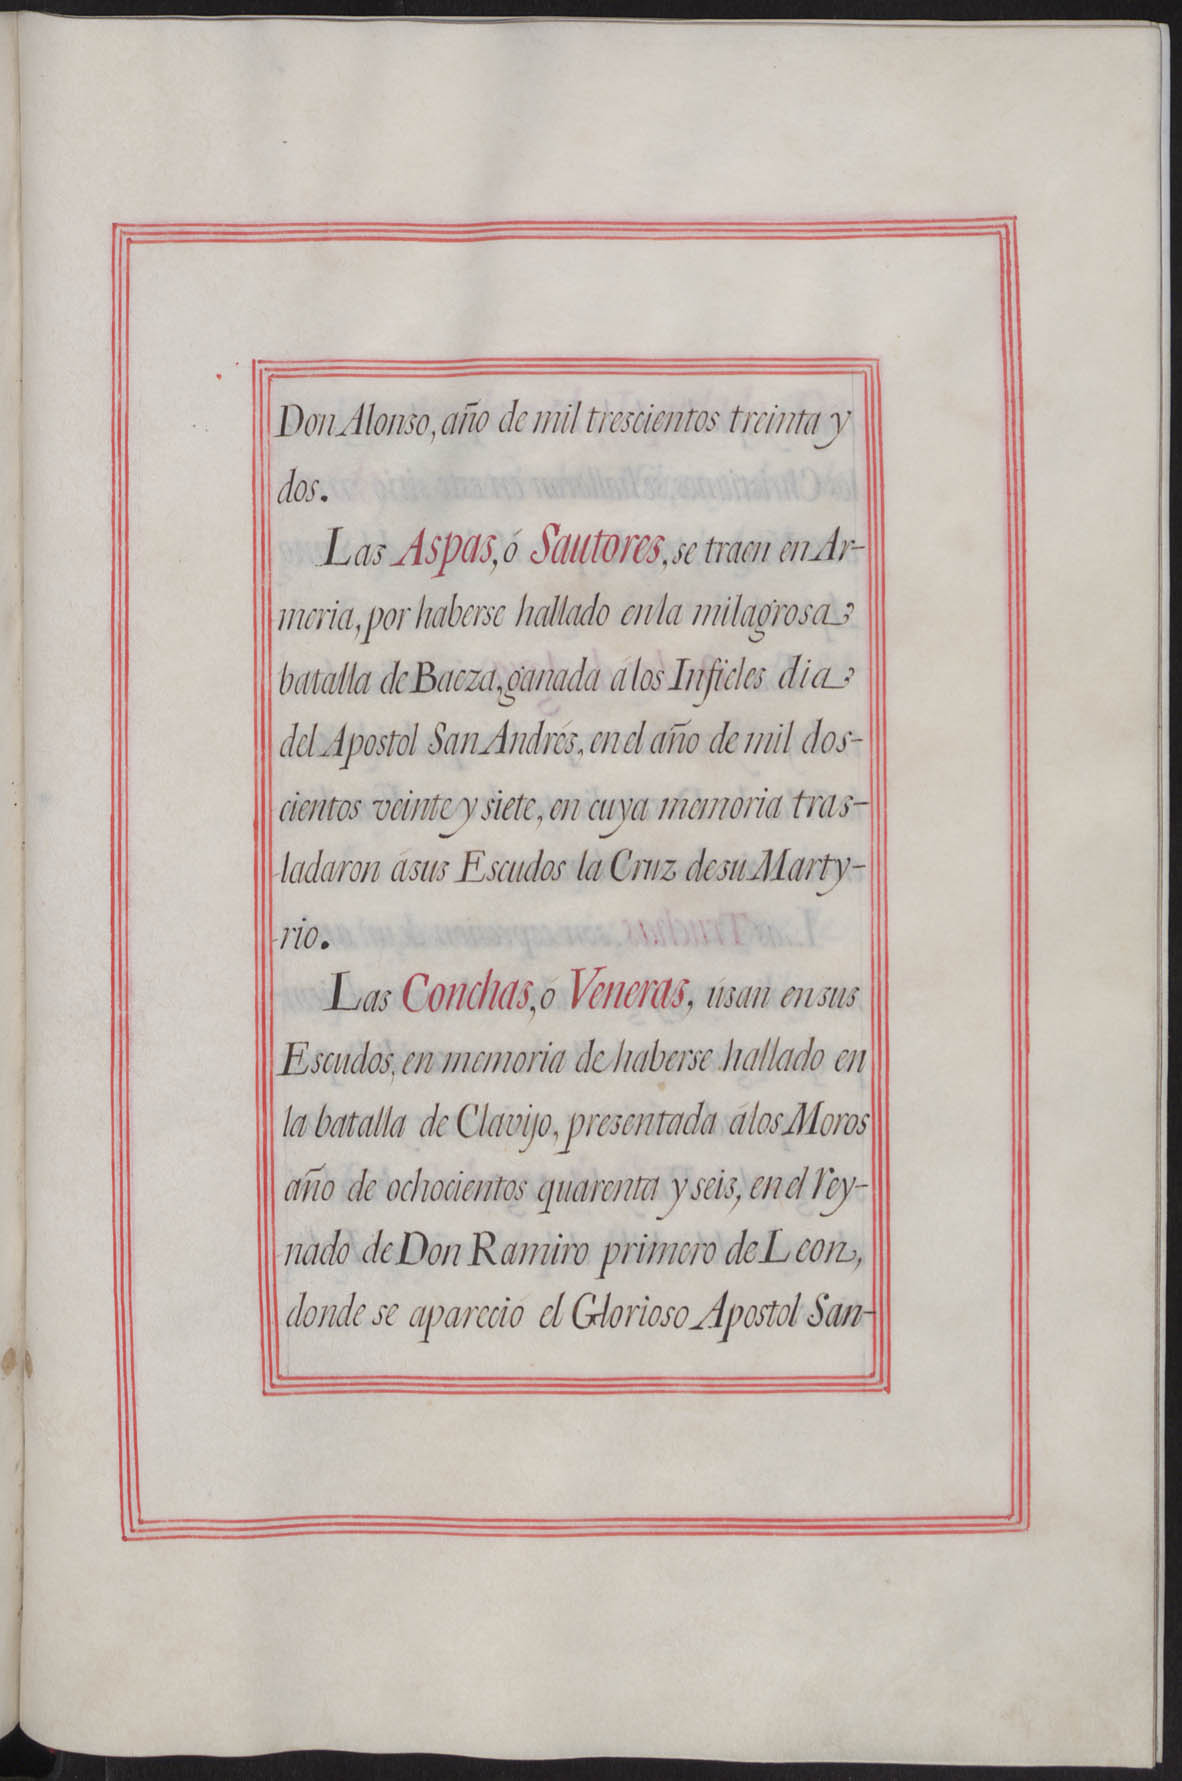 Don Alonso, año de mil trescientos treinta y
dos.
Las Aspas, ó Sautores, se traen en Ar-
meria, por haberse hallado en la milagrosa
batalla de Baeza, ganada á los Infieles dia
del Apostol San Andrés, en el año de mil dos-
cientos veinte y siete, en cuya memoria tras-
ladaron á sus Escudos la Cruz de su Marty-
rio.
Las Conchas, ó Veneras, úsan en sus
Escudos, en memoria de haberse hallado en
la batalla de Clavijo, presentada á los Moros
año de ochocientos quarenta y seis, en el rey-
nado de Don Ramiro primero de Leon,
donde se apareció el Glorioso Apostol San-